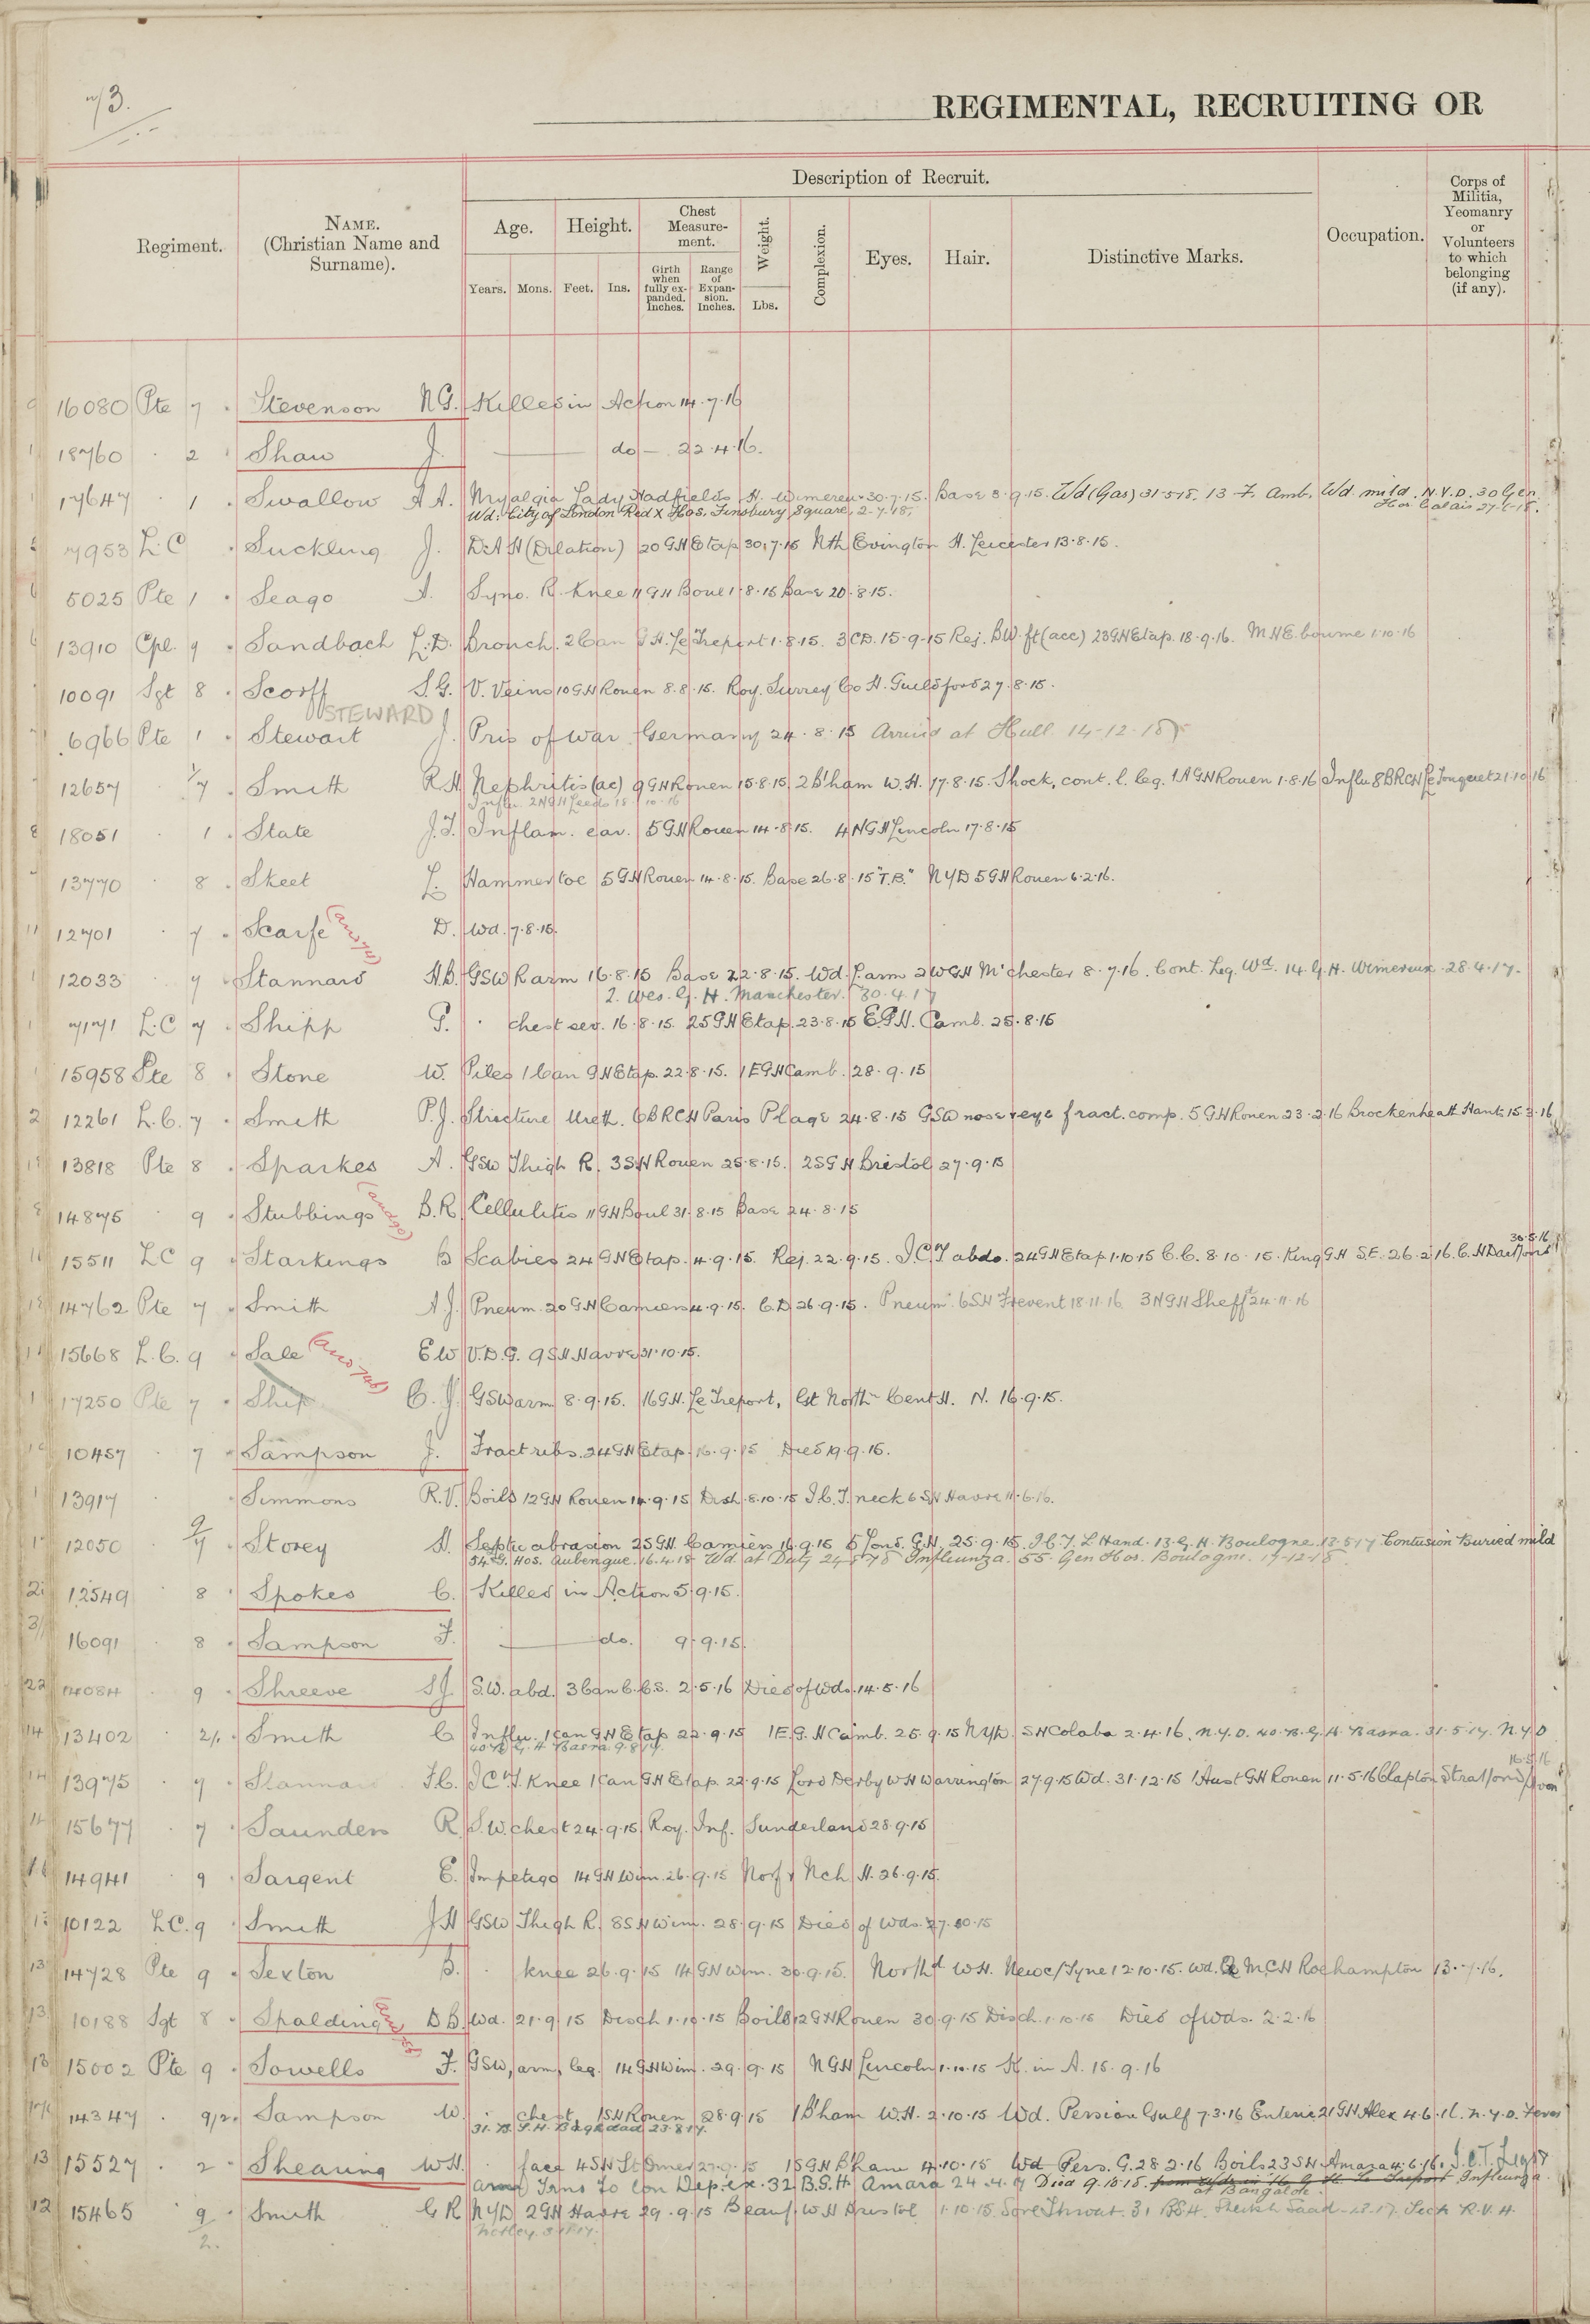 73.
REGIMENTAL, RECRUITING OR
Description of Recruit.
Regiment.
NAME.
(Christian Name and
Surname).
Age.
Height.
Chest
Measure-
ment.
Weight.
Complexion.
Eyes.
Hair.
Distinctive Marks.
Occupation.
Corps of
Militia,
Yeomanry
or
Volunteers
to which
belonging
(if any).
Years.
Mons.
Feet.
Ins.
Girth
when
fully ex-
panded.
Inches.
Range
of
Expan-
sion.
Inches.
Lbs.
16080 Pte 7 Stevenson N G. Killed in Action 14.7.16
18760 2 Shaw J. do — 22.4.16.
17647 1 Swallow A A. Myalgia Lady Hadfields H. Wimereux 30.7.15. Base 8.9.15. Wd (Gas) 31-5-18. 13 F. Amb. Wd mild. N.Y.D. 30 Gen
Wd: City of London Red X Hos. Finsbury Square, 2-7-18. Hos Calais 27-6-18.
7953 L.C Suckling J. D.A H (Dilation) 20 G H Etap 30.7.15 Nth Evington H. Leicester 13.8.15.
5025 Pte 1 Seago A. Syno. R. Knee 11 G H Boul 1.8.15 Base 20.8.15.
13910 Cpl. 9 Sandbach L.D. Bronch. 2 Can G H. Le Treport 1.8.15. 3 C D. 15-9-15 Rej. B W. ft (acc) 23 G H Etap. 18.9.16. M H E.bourne 1.10.16
10091 Sgt 8 Scorff S.G. V. Veins 10 G H Rouen 8.8.15. Roy. Surrey Co H. Guildford 27.8.15.
STEWARD
6966 Pte 1 Stewart J. Pris of War Germany 24.8.15 Arrived at Hull 14-12-18
12657 1/7 Smith R H. Nephritis (ac) 9 G H Rouen 15.8.15. 2 B'ham W.H. 17.8.15. Shock, cont. l. leg. 1 A G H Rouen 1.8.16 Influ 8 B R C H Le Touquet 21.10.16
Influ. 2 N G H Leeds 18.10.16
18051 1 State J.T. Inflam. ear. 5 G H Rouen 14.8.15. 4 N G H Lincoln 17.8.15
13770 8 Skeet L. Hammer toe 5 G H Rouen 14.8.15. Base 26.8.15 "T.B." N Y D 5 G H Rouen 6.2.16.
12701 7 Scarfe D. Wd. 7.8.15.
12033 7 Stannard H.B. GSW R arm 16.8.15 Base 22.8.15. Wd. L arm 2 W G H M'chester 8.7.16. Cont. Leg. Wd. 14 G. H. Wimereux 28.4.17.
2. Wes. G. H. Manchester. 30.4.17
7171 L.C 7 Shipp G. chest sev. 16.8.15. 25 G H Etap. 23.8.15 E.G H. Camb. 25.8.15
15958 Pte 8 Stone W. Piles 1 Can G H Etap. 22.8.15. 1 E G H Camb. 28.9.15
12261 L.C. 7 Smith P.J. Stricture Ureth. 6 B R C H Paris Plage 24.8.15 GSW nose & eye fract. comp. 5 G H Rouen 23.2.16 Brockenheath Hants 15.3.16
13818 Pte 8 Sparkes A. GSW Thigh R. 3 S H Rouen 25.8.15. 2 S G H Bristol 27.9.15
14875 9 Stubbings B.R. Cellulitis 11 G H Boul 31.8.15 Base 24.8.15
15511 L C 9 Starkings B Scabies 24 G H Etap. 4.9.15. Rej. 22.9.15. I.C.T abdo. 24 G H Etap 1.10.15 C.C. 8.10.15. King G H S.E. 26.2.16. C.H Dartford
30.5.16
14762 Pte 7 Smith A.J. Pneum. 20 G H Camiers 4.9.15. C.D. 26.9.15. Pneum. 6 S H Frevent 18.11.16 3 N G H Sheff 24.11.16
15668 L.C. 9 Sale E W V.D.G. 9 S H Havre 31.10.15.
17250 Pte 7 Ship C. J. GSW arm 8.9.15. 16 G H. Le Treport, Gt North Cent H. N. 16.9.15.
10457 7 Sampson J. Fract ribs. 24 G H Etap. 16.9.15 Died 19.9.15.
13917 Simmons R.V. Boils 12 G H Rouen 14.9.15 Disch. 8.10.15 I.C.T. neck 6 S H Havre 11.6.16.
12050 9/7 Storey H. Septic abrasion 25 G H. Camiers 16.9.15 5 Lond. G.H. 25.9.15. I.C.T. L Hand. 13 G. H. Boulogne 13.5.17 Contusion Buried mild
54 G. Hos. Aubengue. 16.4.18 Wd. at Duty 24 Influenza. 55. Gen Hos. Boulogne. 17-12-18
12549 8 Spokes C. Killed in Action 5.9.15.
16091 8 Sampson F. do. 9.9.15.
14084 9 Shreeve S J S.W. abd. 3 Can C.C.S. 2.5.16 Died of Wds. 14.5.16
13402 2/. Smith C Influ. 1 Can G H Etap 22.9.15 1 E.G. H Camb. 25.9.15 N Y D. S H Colaba 2.4.16. N.Y.D. 40.B.G.H. Basra. 31.5.17. N.Y.D
40 B. G. H. Basra. 9.8.17.
13975 7 Stannard F.C. I C T Knee 1 Can G H Etap. 22.9.15 Lord Derby W H Warrington 27.9.15 Wd. 31.12.15 1 Aust G H Rouen 11.5.16 Clapton Stratford/Avon
16.5.16
15677 7 Saunders R. S.W. chest 24.9.15 Roy. Inf. Sunderland 28.9.15
14941 9 Sargent E. Impetigo 14 G H Wim. 26.9.15 Norf & Nch H. 26.9.15.
10122 L.C. 9 Smith J H GSW Thigh R. 8 S H Wim. 28.9.15 Died of Wds. 27.10.15
14728 Pte 9 Sexton B. Knee 26.9.15 14 G H Wim. 30.9.15. Northd W.H. Newc/Tyne 12.10.15. Wd. Q M.C.H Roehampton 13.7.16.
10188 Sgt 8 Spalding D B. Wd. 21.9.15 Disch 1.10.15 Boils 12 G H Rouen 30.9.15 Disch. 1.10.15 Died of Wds. 2.2.16
15002 Pte 9 Sowells F. GSW, arm, leg. 14 G H Wim. 29.9.15 N G H Lincoln 1.10.15 K. in A. 15.9.16
14347 9/2 Sampson W. chest, 1 S H Rouen 28.9.15 1 B'ham W.H. 2.10.15 Wd. Persian Gulf 7.3.16 Enteric 21 G H Alex 4.6.16. N.Y.D. Fever
31. B. G. H. Baghdad 23.8.17.
15527 2 Shearing W H. face 4 S H St Omer 27.9.15 1 S G H B'ham 4.10.15 Wd Pers. G. 28.2.16 Boils 23 S H Amara 4.6.16. I.C.T.
arm Trns to Con Dep. ex. 32 B.G.H. Amara 24.4.17 Died 9.10.18. Influenza
at Bangalore.
15465 9/2. Smith G R N Y D 2 G H Havre 29.9.15 Beauf. W H Bristol 1.10.15. Sore Throat. 31 B S H. Sheikh Saad Sick R.V.H.
Netley.